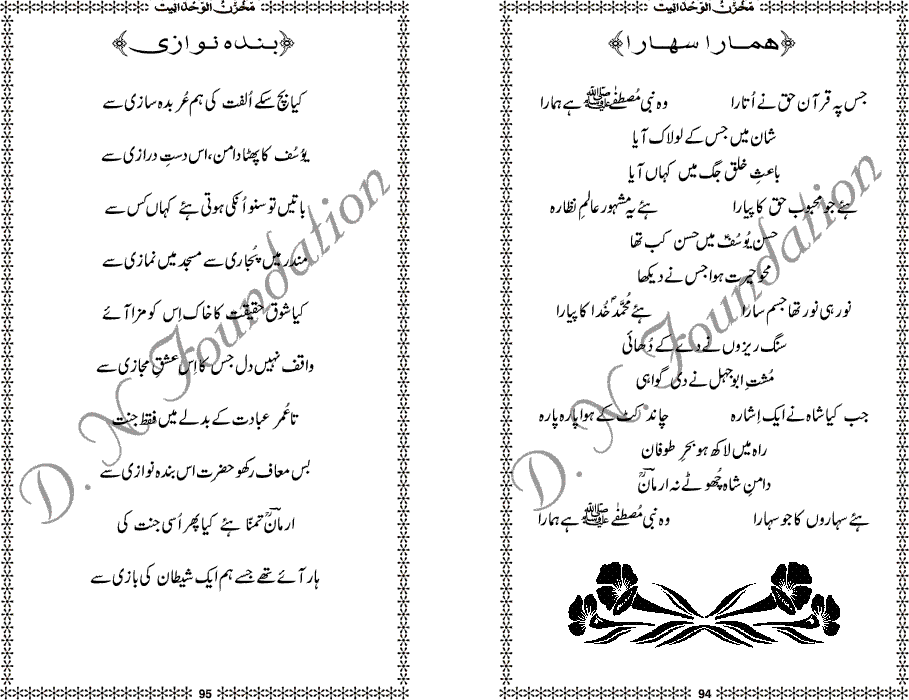 مخزنُ الوحدانیت
﴿ھمارا سھارا﴾
جس پہ قرآن حق نے اُتارا وہ نبی مُصطفےٰ ﷺ ہے ہمارا
شان میں جس کے لولاک آیا
باعثِ خلق جگ میں کہاں آیا
ہئے جو محبوب حق کا پیارا ہئے یہ مشہور عالمِ نظارہ
حسن یُوسُفؑ میں حسن کب تھا
محوِ حیرت ہوا جس نے دیکھا
نور ہی نور تھا جسم سارا ہئے مُحمّدؐ خُدا کا پیارا
سنگ ریزوں نے دے کے دُھائی
مُشتِ ابو جہل نے دی گواہی
جب کیا شاہ نے ایک اِشارہ چاند کٹ کے ہوا پارہ پارہ
راہ میں لاکھ ہو بحرِ طوفان
دامنِ شاہ چُھوٹے نہ ارمانؔ
ہئے سہاروں کا جو سہارا وہ نبی مُصطفےٰ ﷺ ہے ہمارا
94
مخزنُ الوحدانیت
﴿بندہ نوازی﴾
کیا بچ سکے اُلفت کی ہم عُربدہ سازی سے
یوُسُف کا پھٹا دامن، اس دستِ درازی سے
باتیں تو سنو اُنکی ہوتی ہئے کہاں کس سے
مندر میں پُجاری سے مسجد میں نمازی سے
کیا شوق حقیقت کا خاک اِس کو مزا آئے
واقف نہیں دل جس کا اِس عشقِ مجازی سے
تا عُمر عبادت کے بدلے میں فقط جنت
بس معاف رکھو حضرت اس بندہ نوازی سے
ارمانؔ تمنّا ہئے کیا پھر اُسی جنت کی
ہار آئے تھے جسے ہم ایک شیطان کی بازی سے
95
D. N Foundation
D. N Foundation